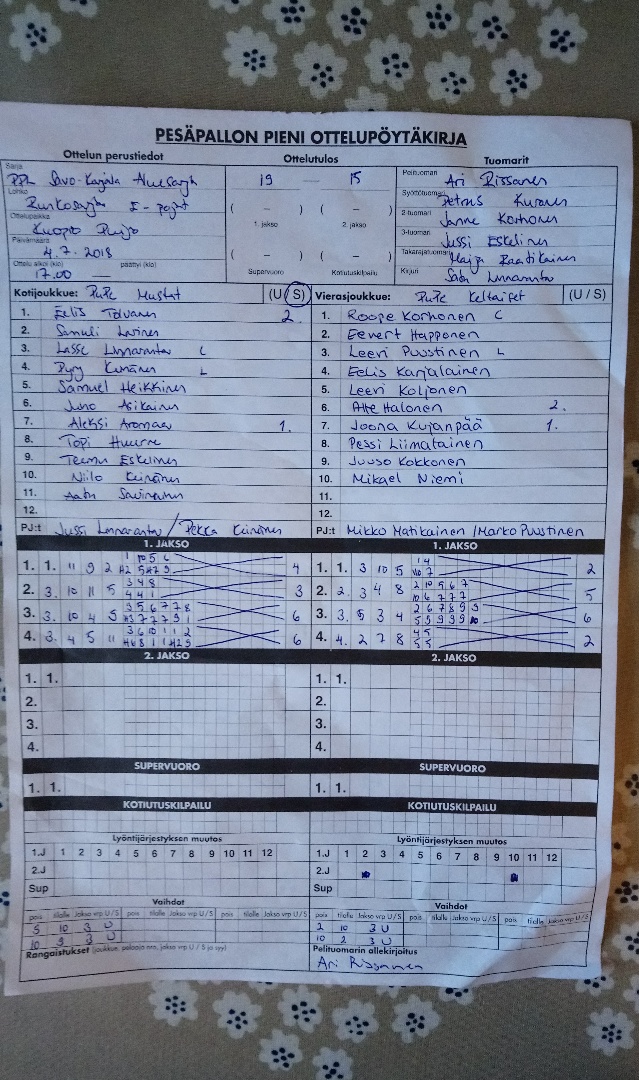 PESÄPALLON PIENI OTTELUPÖYTÄKIRJA
Ottelun perustiedot Ottelutulos Tuomarit
Sarja PPL Savo-Karjala Aluesarja
Lohko Runkosarja E-pojat
Ottelupaikka Kuopio Puijo
Päivämäärä 4.7.2018
Ottelu alkoi (klo) 17.00 päättyi (klo) —
19 — 15
( – ) ( – )
1. jakso 2. jakso
( – ) ( – )
Supervuoro Kotiutuskilpailu
Pelituomari Ari Rissanen
Syöttötuomari Petrus
2-tuomari Janne Korhonen
3-tuomari Jussi Eskelinen
Takarajatuomari Maija Raatikainen
Kirjuri Linnaranta
Kotijoukkue: PuPe Mustat (U/S)
1. Eelis Tolvanen 2.
2. Samuli
3. Lasse Linnaranta C
4. L
5. Samuel Heikkinen
6. Juho Asikainen
7. Aleksi Aromaa 1.
8. Topi
9. Teemu Eskelinen
10. Niilo Keinänen
11. Aatu
12.
PJ:t Jussi Linnaranta / Pekka Keinänen
Vierasjoukkue: PuPe Keltaiset (U / S)
1. Roope Korhonen C
2. Eevert Happonen
3. Leevi Puustinen L
4. Eelis Karjalainen
5. Leevi Koljonen
6. Atte Halonen 2.
7. Joona Kujanpää 1.
8. Pessi Liimatainen
9. Juuso Kokkonen
10. Mikael Niemi
11.
12.
PJ:t Mikko Matikainen / Marko Puustinen
1. JAKSO 1. JAKSO
1. 1. 11 9 2 4
2. 3. 10 11 5 3 4 8 4 4 1 3
3. 3. 10 4 5 3 5 6 7 7 8 6
4. 3. 4 5 11 3 6 10 1 1 2 6
1. 1. 3 10 5 1 4 10 7 2
2. 2. 3 4 8 2 10 5 6 7 10 6 7 7 7 5
3. 3. 5 3 4 2 6 7 8 9 3 5 9 9 9 9 6
4. 4. 2 7 8 4 5 5 5 2
2. JAKSO 2. JAKSO
1. 1. 1. 1.
2. 2.
3. 3.
4. 4.
SUPERVUORO SUPERVUORO
1. 1. 1. 1.
KOTIUTUSKILPAILU KOTIUTUSKILPAILU
Lyöntijärjestyksen muutos Lyöntijärjestyksen muutos
1.J 1 2 3 4 5 6 7 8 9 10 11 12 1.J 1 2 3 4 5 6 7 8 9 10 11 12
2.J 2.J
Sup Sup
Vaihdot Vaihdot
pois tilalle Jakso vrp U/S pois tilalle Jakso vrp U/S pois tilalle Jakso vrp U/S
pois tilalle Jakso vrp U/S pois tilalle Jakso vrp U/S pois tilalle Jakso vrp U/S
5 10 3 U
10 9 3 U
2 10 3 U
10 2 3 U
Rangaistukset (joukkue, pelaaja nro, jakso vrp U / S ja syy)
Pelituomarin allekirjoitus
Ari Rissanen